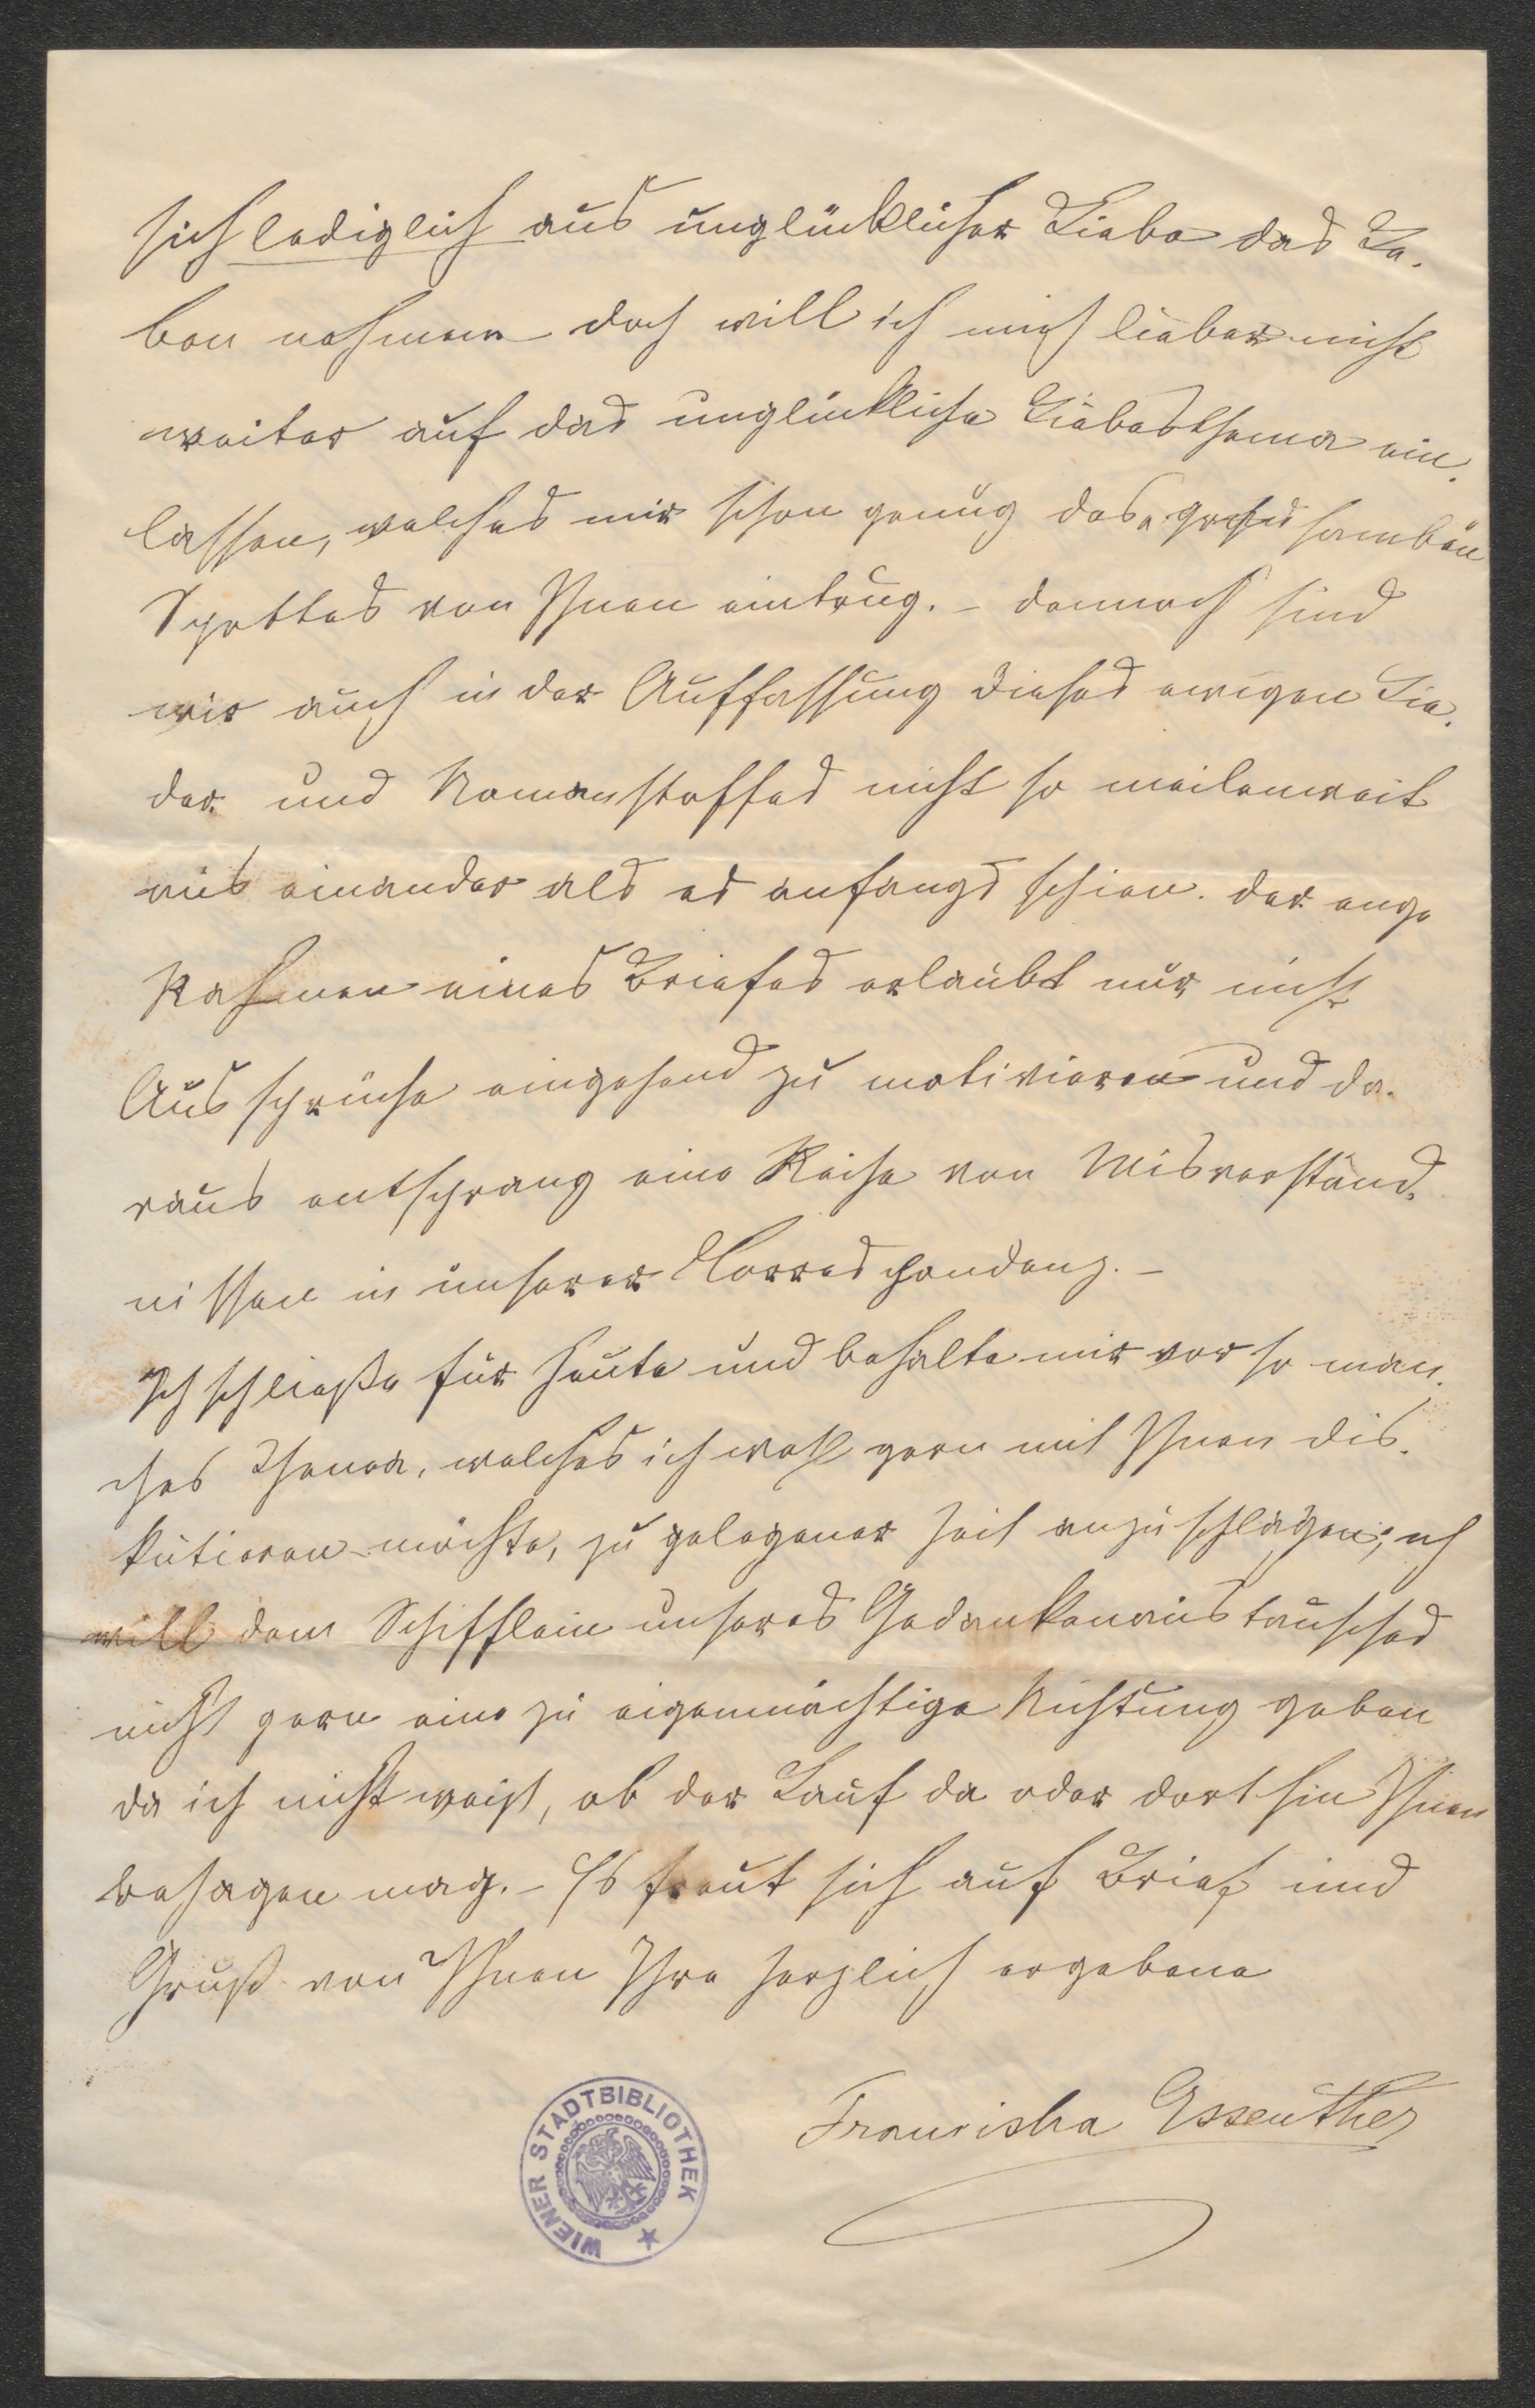 sich lediglich aus unglücklicher Liebe das Le-
ben nehmen doch will ich mich lieber nicht
weiter auf das unglückliche Liebesthema ein-
lassen, welches mir schon genug des
Spottes von Ihnen eintrug. – dennoch sind
wir auch in der Auffassung dieses ewigen Lie-
der- und Romanstoffes nicht so meilenweit
aus einander als es anfangs schien. der enge
Rahmen eines Briefes erlaubt nur nicht
Aussprüche eingehend zu motivieren und da-
raus entsprang eine Reihe von Misverständ-
nissen in unserer Correspondenz. –
Ich schließe für heute und behalte mir vor so man-
ches Thema, welches ich wohl gern mit Ihnen dis-
kutieren möchte, zu gelegener Zeit anzuschlagen; ich
will dem Schifflein unseres Gedankenaustausches
nicht gern eine zu eigenmächtige Richtung geben
da ich nicht weiß, ob der Lauf da oder dorthin Ihnen
behagen mag. – Es freut sich auf Brief und
Gruß von Ihnen Ihre herzlich ergebene
Franziska Essenther
WIENER STADTBIBLIOTHEK